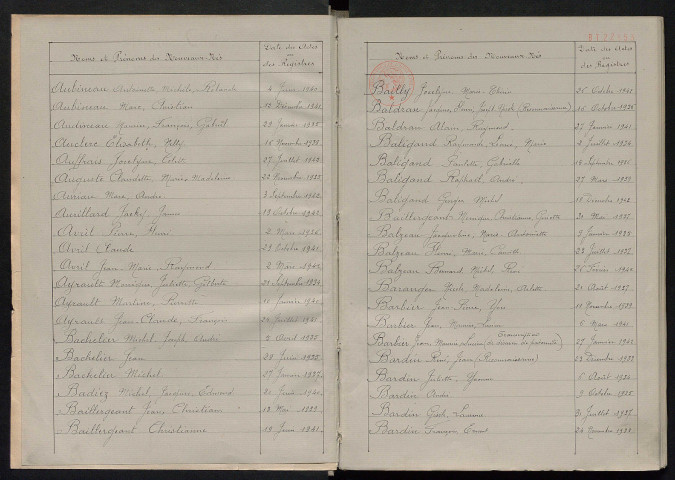 Noms et Prénoms des Nouveaux-Nés
Date des Actes
ou
des Registres
Aubineau Antoinette, Michèle, Rolande 4 Juin 1941
Aubineau Marc, Christian 12 Décembre 1941
Maurice, François, Gabriel 29 Janvier 1935
Auclerc Elisabeth, Nelly 16 Novembre 1938
Auffrais Jocelyne, Colette 27 Juillet 1942
Auguste Claudette, Marie Madeleine 22 Novembre 1935
Auriau Marc, André 3 Septembre 1942
Autillard Jacky, James 19 Octobre 1942
Avril Pierre, Henri 2 Mars 1936
Avril Claude 29 Octobre 1940
Avril Jean Marie, Raymond 2 Mars 1942
Ayrault Monique, Juliette, Gilberte 21 Septembre 1934
Ayrault Martine, Pierrette 11 Janvier 1940
Ayrault Jean-Claude, François 20 Juillet 1941
Bachelier Michel, Joseph, André 2 Avril 1935
Bachelier Jean 28 Juin 1935
Bachelier Michel 27 Janvier 1937
Badiez Michel, Jacques, Edmond 21 Juin 1940
Baillergeant Jean, Christian 12 Mai 1939
Baillergeant Christianne 19 Juin 1941
Noms et Prénoms des Nouveaux-Nés
Date des Actes
ou
des Registres
Bailly Jocelyne, Marie 25 Octobre 1941
Baldran (Reconnaissance) 15 Octobre 1936
Baldran Alain, Raymond 27 Février 1941
Baligand Raymonde, Marie 2 Juillet 1934
Baligand Paulette, Gabrielle 18 Septembre 1935
Baligand Raphaël, André 27 Mars 1939
Baligand Georges, Michel 11 Décembre 1942
Baillergeant Monique 31 Mai 1937
Balzeau Jacqueline, Marie Antoinette 9 Janvier 1935
Balzeau Pierre, Marie 23 Juillet 1937
Balzeau Bernard, Michel 25 Février 1940
Baranger Nicole, Madeleine, Arlette 21 Août 1937
Barbier Jean, Pierre, Yves 10 Novembre 1939
Barbier Jean, Maurice, Lucien 5 Mars 1941
Barbier Jean, Maurice, Lucien (Transcription de désaveu de paternité) 27 Janvier 1942
Bardin René, Jean (Reconnaissance) 23 Décembre 1933
Bardin Juliette, Yvonne 6 Août 1934
Bardin André 9 Octobre 1935
Bardin Gisèle, Lucienne 31 Juillet 1937
Bardin François 24 Novembre 1938